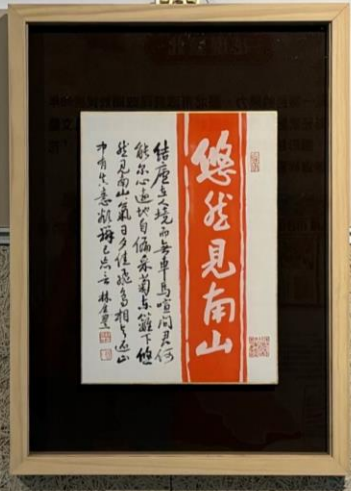 悠然見南山
結廬在人境而無車馬喧問君何
能尔心遠地自偏采菊东籬下悠
然見南山氣日夕佳飛鳥相与还此
中有真意欲辯已忘言 林